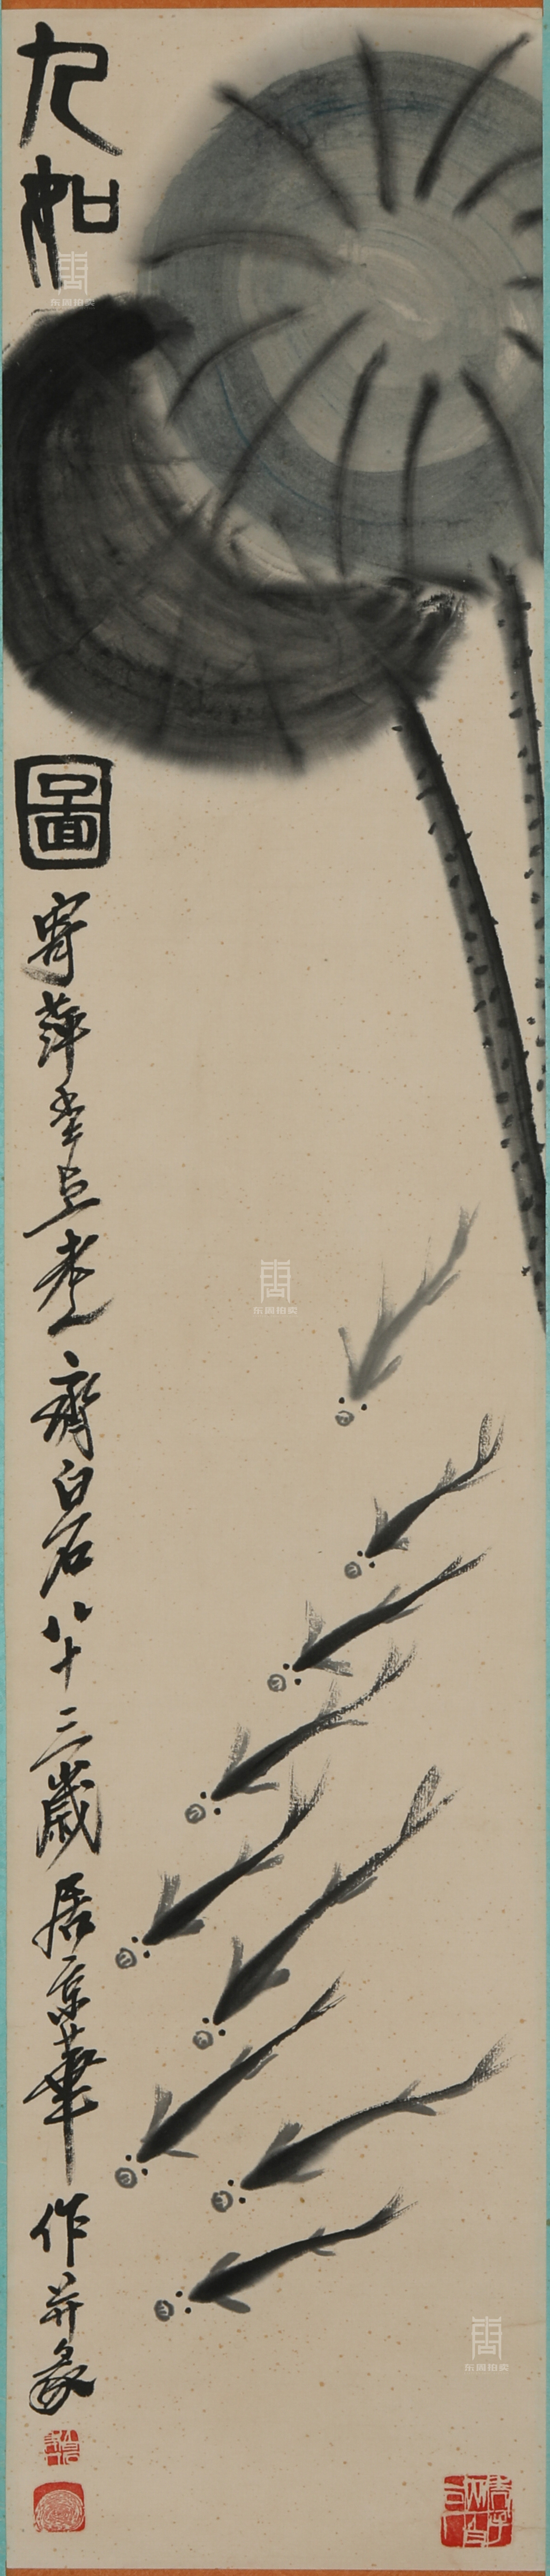 九如圖
寄萍堂上老人齊白石八十三歲居京華作并篆
东周拍卖
东周拍卖
东周拍卖